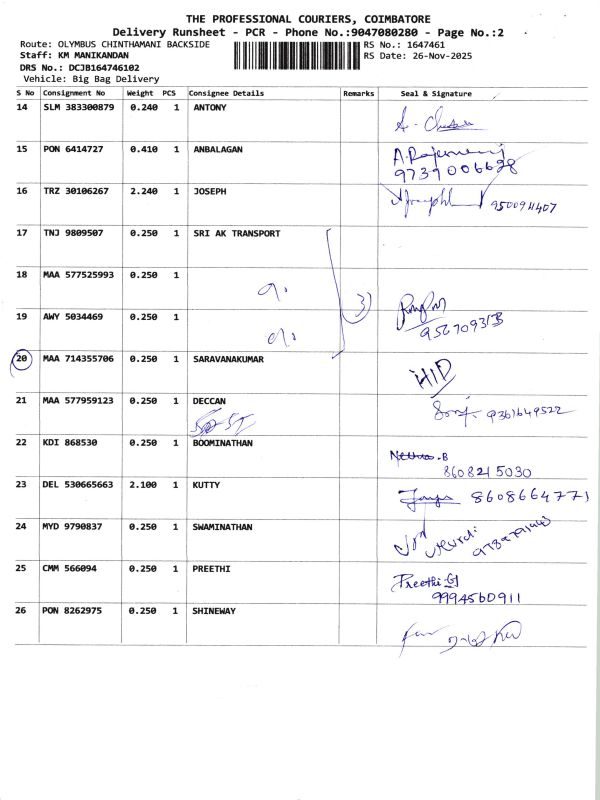 THE PROFESSIONAL COURIERS, COIMBATORE
Delivery Runsheet - PCR - Phone No.:9047080280 - Page No.:2
Route: OLYMBUS CHINTHAMANI BACKSIDE
RS No.: 1647461
Staff: KM MANIKANDAN
RS Date: 26-Nov-2025
DRS No.: DCJB164746102
Vehicle: Big Bag Delivery
S No Consignment No Weight PCS Consignee Details Remarks Seal & Signature
14 SLM 383300879 0.240 1 ANTONY
15 PON 6414727 0.410 1 ANBALAGAN
9739006628
16 TRZ 30106267 2.240 1 JOSEPH
9500911407
17 TNJ 9809507 0.250 1 SRI AK TRANSPORT
18 MAA 577525993 0.250 1
3)
19 AWY 5034469 0.250 1
20 MAA 714355706 0.250 1 SARAVANAKUMAR
H/D
21 MAA 577959123 0.250 1 DECCAN
9361649522
22 KDI 868530 0.250 1 BOOMINATHAN
Nethra.B
8608215030
23 DEL 530665663 2.100 1 KUTTY
8608664771
24 MYD 9790837 0.250 1 SWAMINATHAN
25 CMM 566094 0.250 1 PREETHI
Preethi G
9994560911
26 PON 8262975 0.250 1 SHINEWAY